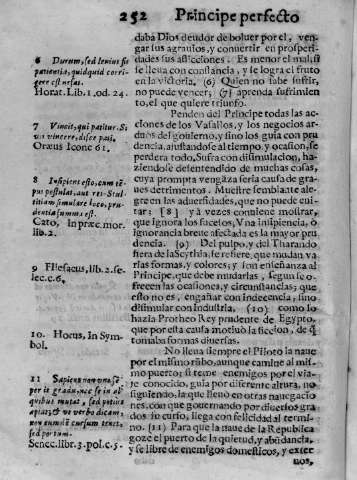 252 Principe perfecto
6 Durum, sed levius fit
patientia, quidquid corri-
gere est nefas.
Horat. Lib. 1. od. 24.
7 Vincit, qui patitur. Si
vis vincere, disce pati.
Oræus Iconc 61.
8 Insipiens esto, cum tē-
pus postulat, aut res. Stul-
titiam simulare loco, pru-
dentia summa est.
Cato, In præc. mor.
lib. 2.
9 Filesacus, lib. 2. se-
lec. c. 6,
10. Horus, in Sym-
bol.
11 Sapiens non
per in
quibus mutat, sed potius
aptat; &
non eumdē cursum tenet,
sed portum.
Senec. libr. 3. pol. c. 5.
daba Dios deudor de boluer por el, ven-
gar sus agrauios, y conuertir en prosperi-
dades sus aflicciones. Es menor el mal, si
se lleua con constancia, y se logra el fruto
en la vitoria. (6) Quien no sabe sufrir,
no puede vencer; (7) aprenda sufrimien
to, el que quiere triunfo.
Penden del Principe todas las ac-
ciones de los Vasallos, y los negocios ar-
duos del gouierno, y sino los guia con pru
dencia, ajustandose al tiempo, y ocasion, se
perderá todo. Sufra con disimulacion, ha-
ziendose desentendido de muchas cosas,
cuya prompta vengāza seria causa de gra-
ues detrimentos. Muestre semblante ale-
gre en las aduersidades, que no puede eui-
tar: [8] y à vezes conuiene mostrar,
que ignora los sucesos, Vna insipiencia, ò
ignorancia breue afectada es la mayor pru
dencia. (9) Del pulpo, y del Tharando
fiera de la Scythia, se refiere, que mudan va
rias formas, y colores, y son enseñanza al
Principe, que debe mudarlas, segun se o-
frecen las ocasiones, y circunstancias; que
esto no es, engañar con indecencia, sino
disimular con industria. (10) como lo
hazia Protheo Rey prudente de Egypto,
que por esta causa motiuò la ficcion, de q̄
tomaba formas diuersas.
No lleua siempre el Piloto la naue
por el mismo rūbo, aunque camine al mis-
mo puerto; si teme enemigos por el via-
je conocido, guia por diferente altura, no
siguiendo, la que lleuò en otras nauegacio
nes, con que gouernando por diuersos gra-
dos su curso, llega con felicidad al termi-
no. (11) Para que la naue de la Republica
goze el puerto de la quietud, y abūdancia,
y se libre de enemigos domesticos, y exter
nos,